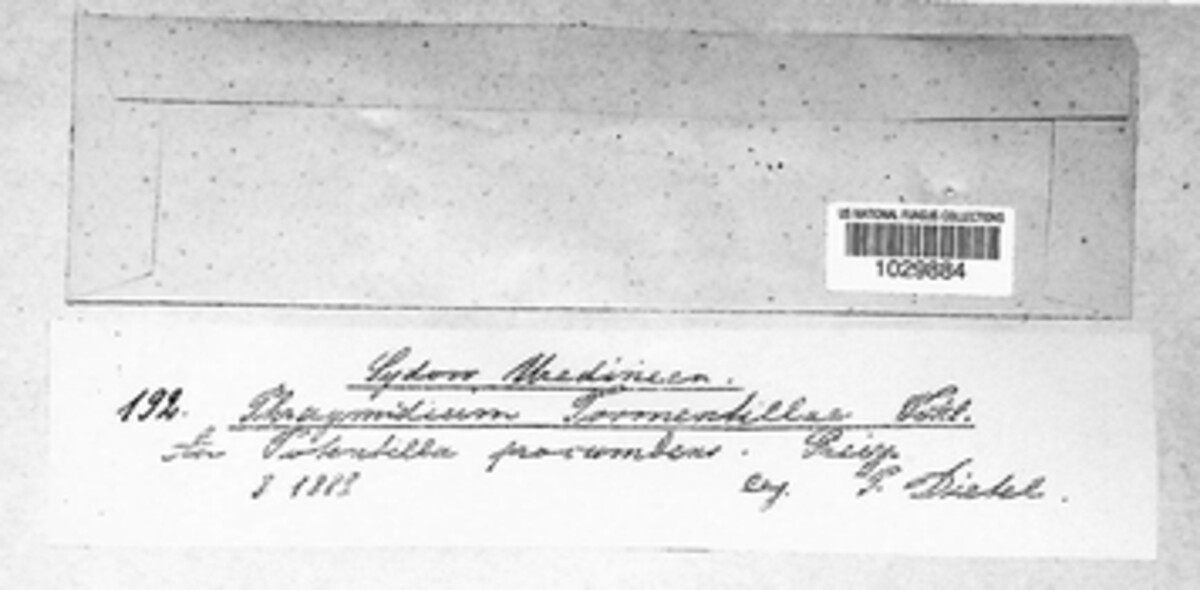 US NATIONAL FUNGUS COLLECTIONS
1029884
Sydow Uredineen.
192. Phragmidium Tormentillae Fckl.
An Potentilla procumbens. Leipz.
leg. P. Dietel.